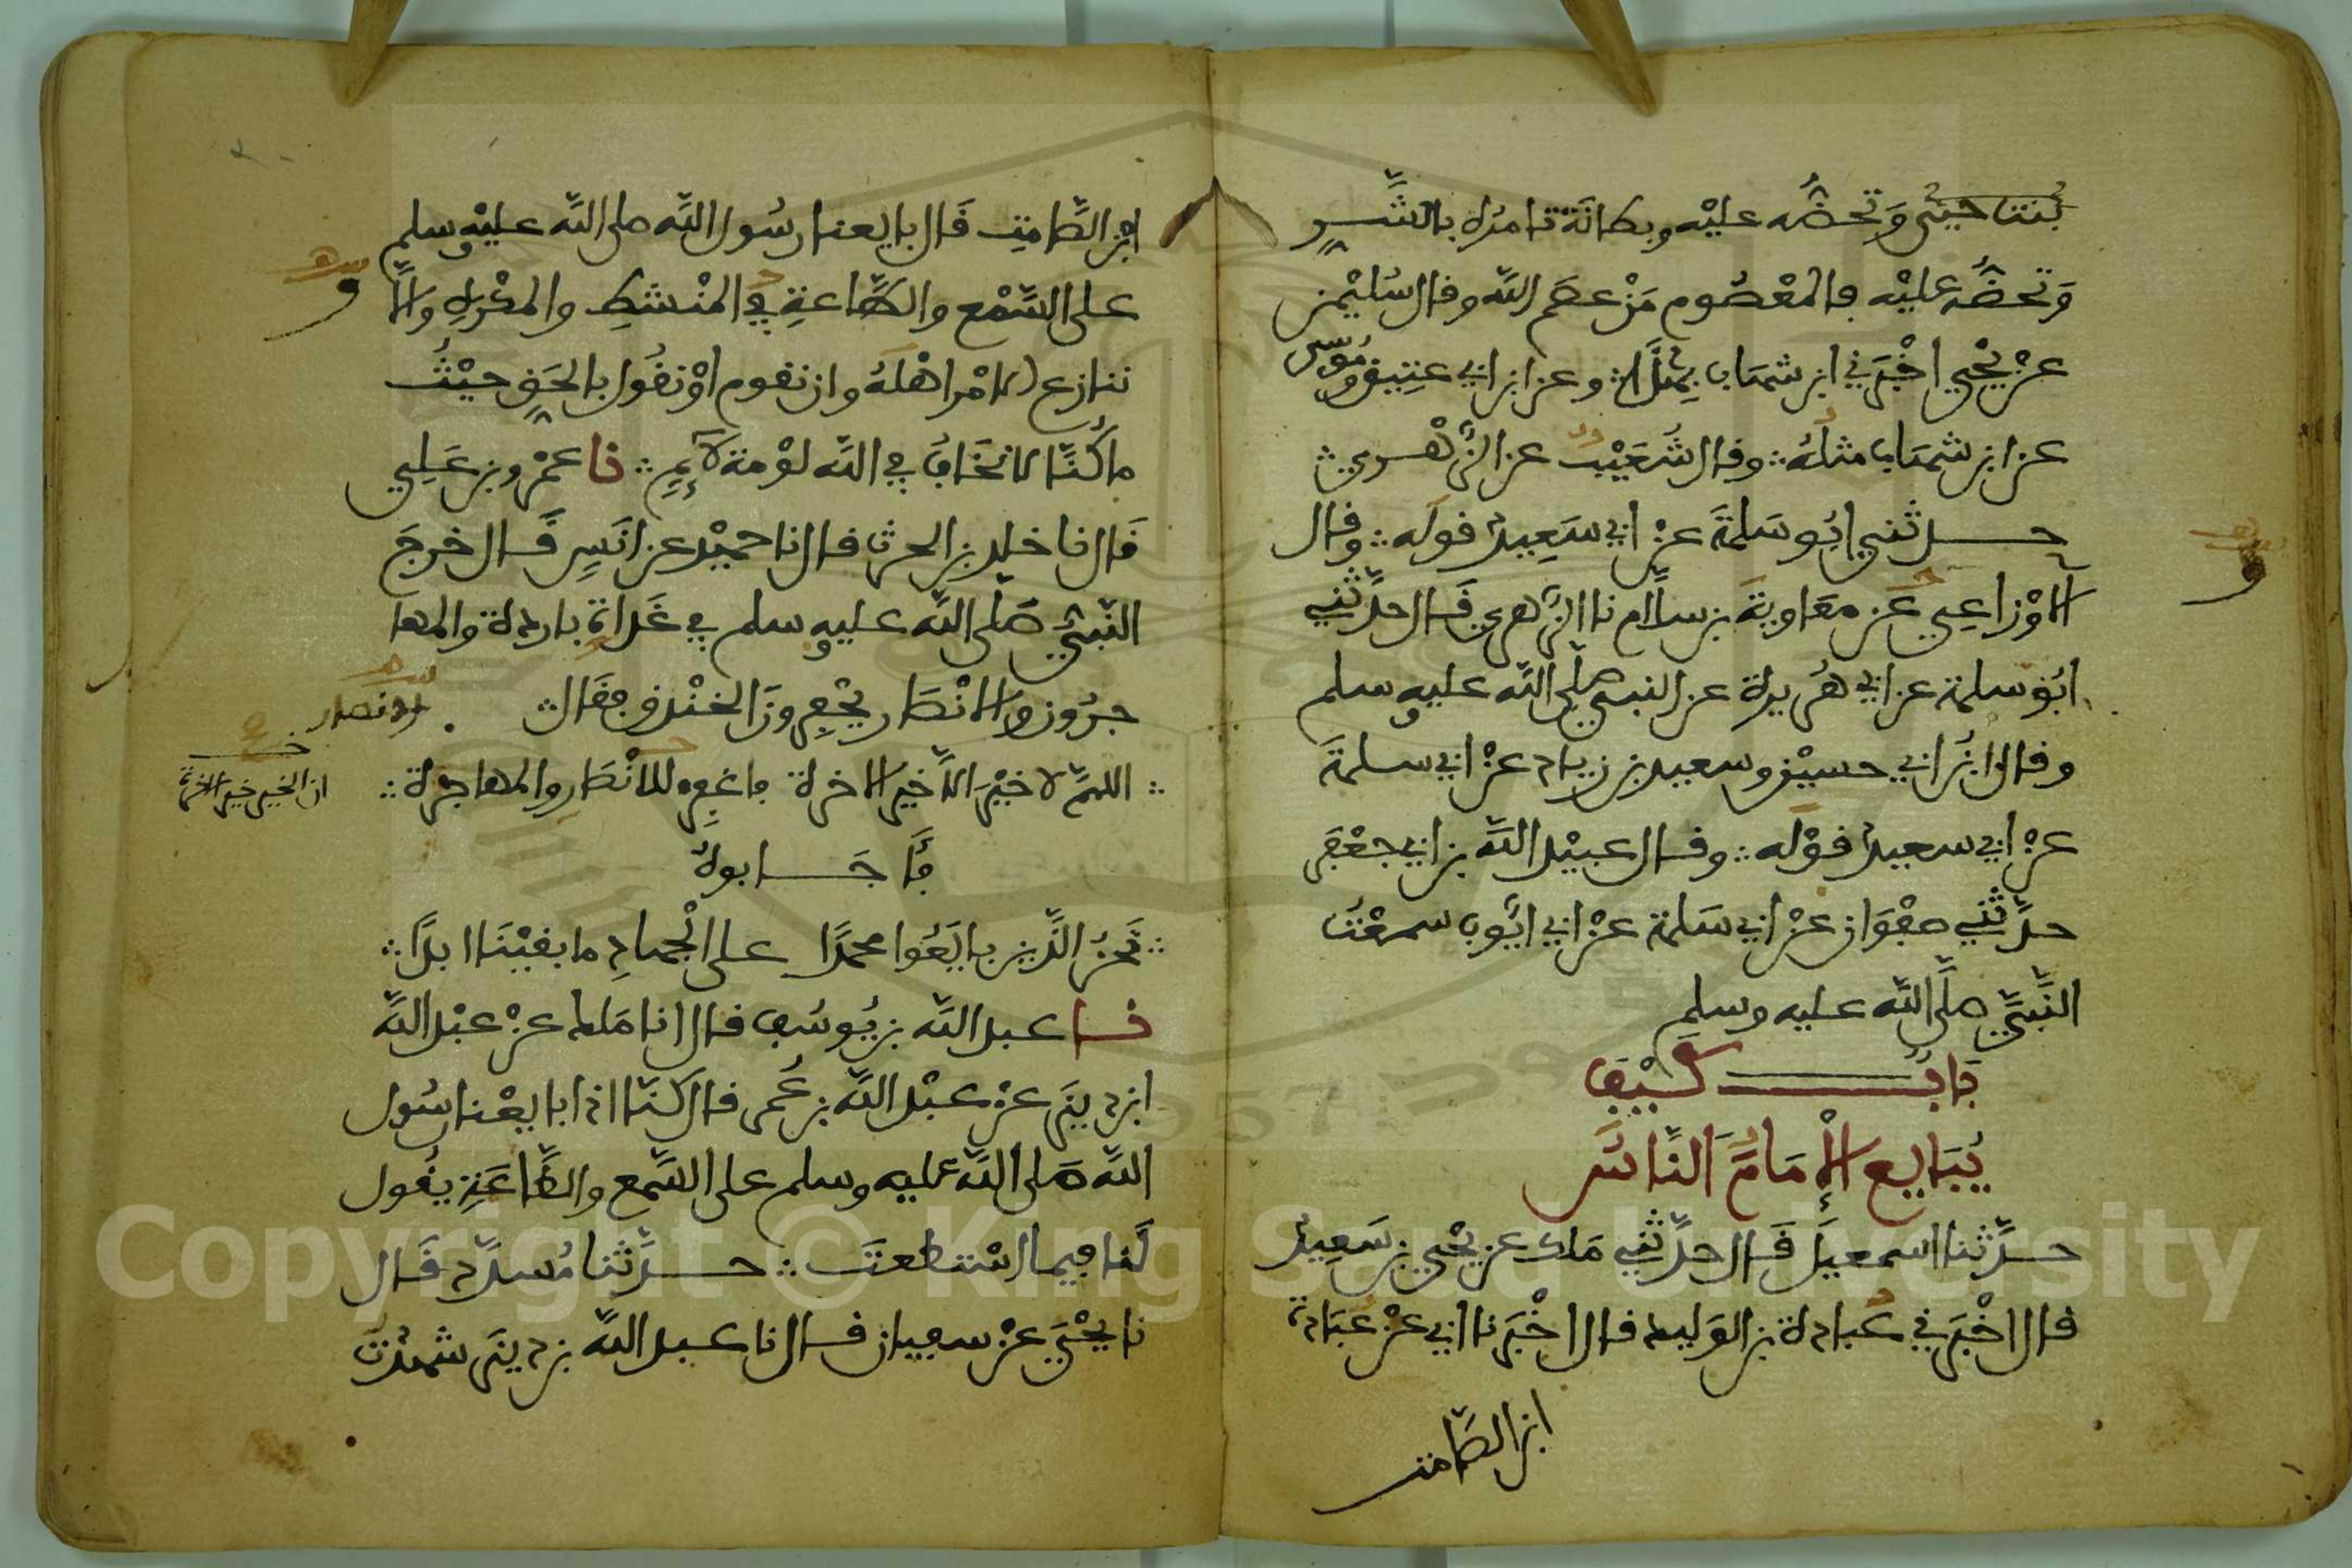 وتحضه عليه وبطانة تامره بالشر
وتحضه عليه فالمعصوم من عصم الله وقال سليمن
عن يحيى اخبرني ابن شهاب بهذا وعن ابن ابي عتيق وموسى
عن ابن شهاب مثله وقال شعيب عن الزهري
حدثني ابو سلمة عن ابي سعيد قوله وقال
الاوزاعي عن معاوية بن سلام نا الزهري قال حدثني
ابو سلمة عن ابي هريرة عن النبي صلى الله عليه وسلم
وقال ابن ابي حسين وسعيد بن زياد عن ابي سلمة
عن ابي سعيد قوله وقال عبيد الله بن ابي جعفر
حدثني صفوان عن ابي سلمة عن ابي ايوب سمعت
النبي صلى الله عليه وسلم
باب كيف
يبايع الإمام الناس
حدثنا اسمعيل قال حدثني ملك عن يحيى بن سعيد
قال اخبرني عبادة بن الوليد قال اخبرنا ابي عن عبادة
ابن الصامت
ابن الصامت قال بايعنا رسول الله صلى الله عليه وسلم
على السمع والطاعة في المنشط والمكره والا
ننازع الامر اهله وان نقوم او نقول بالحق حيث
ما كنا لا نخاف في الله لومة لائم نا عمرو بن علي
قال نا خلد بن الحرث قال نا حميد عن انس قال خرج
النبي صلى الله عليه وسلم في غداة باردة والمها
جرون والانصار يحفرون الخندق فقال
والانصار
اللهم لا خير الا خير الاخرة فاغفر للانصار والمهاجرة
ان الخير خير الاخرة
فاجابوه
نحن الذين بايعوا محمدا على الجهاد ما بقينا ابدا
نا عبد الله بن يوسف قال انا ملك عن عبد الله
ابن دينر عن عبد الله بن عمر قال كنا اذا بايعنا رسول
الله صلى الله عليه وسلم على السمع والطاعة يقول
لنا فيما استطعت حدثنا مسدد قال
نا يحيى عن سفيان قال نا عبد الله بن دينر شهدت
Copyright © King Saud University
1957